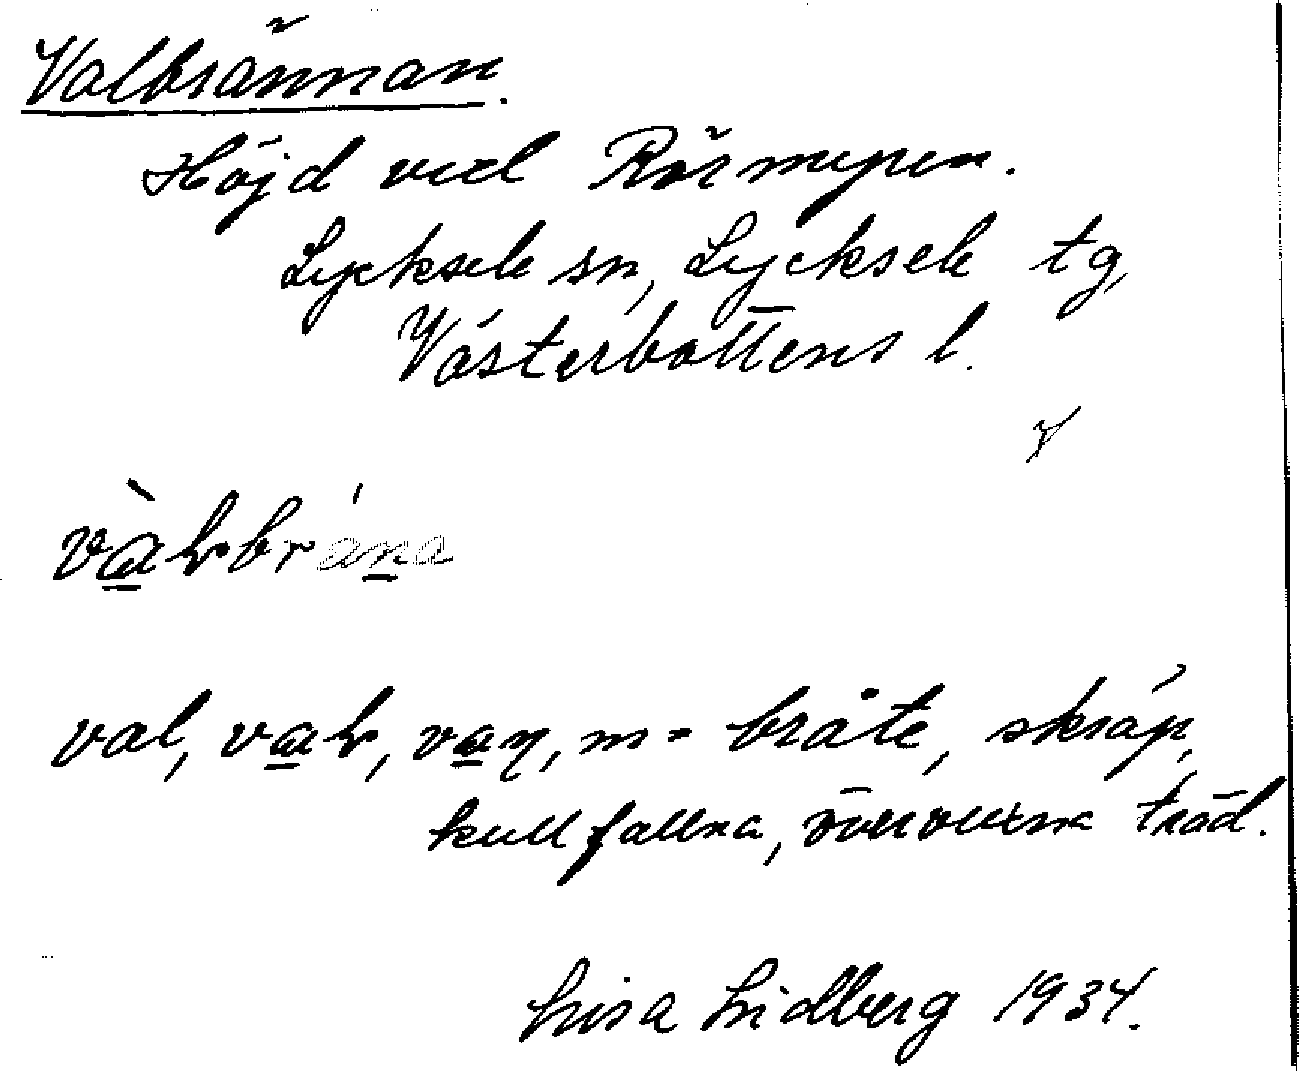 Valbrännan.
Höjd vid Rörmyren.
Lycksele sn, Lycksele tg,
Västerbottens l.
val, m = bråte, skräp,
kullfallna, träd.
Lisa Lidberg 1934.